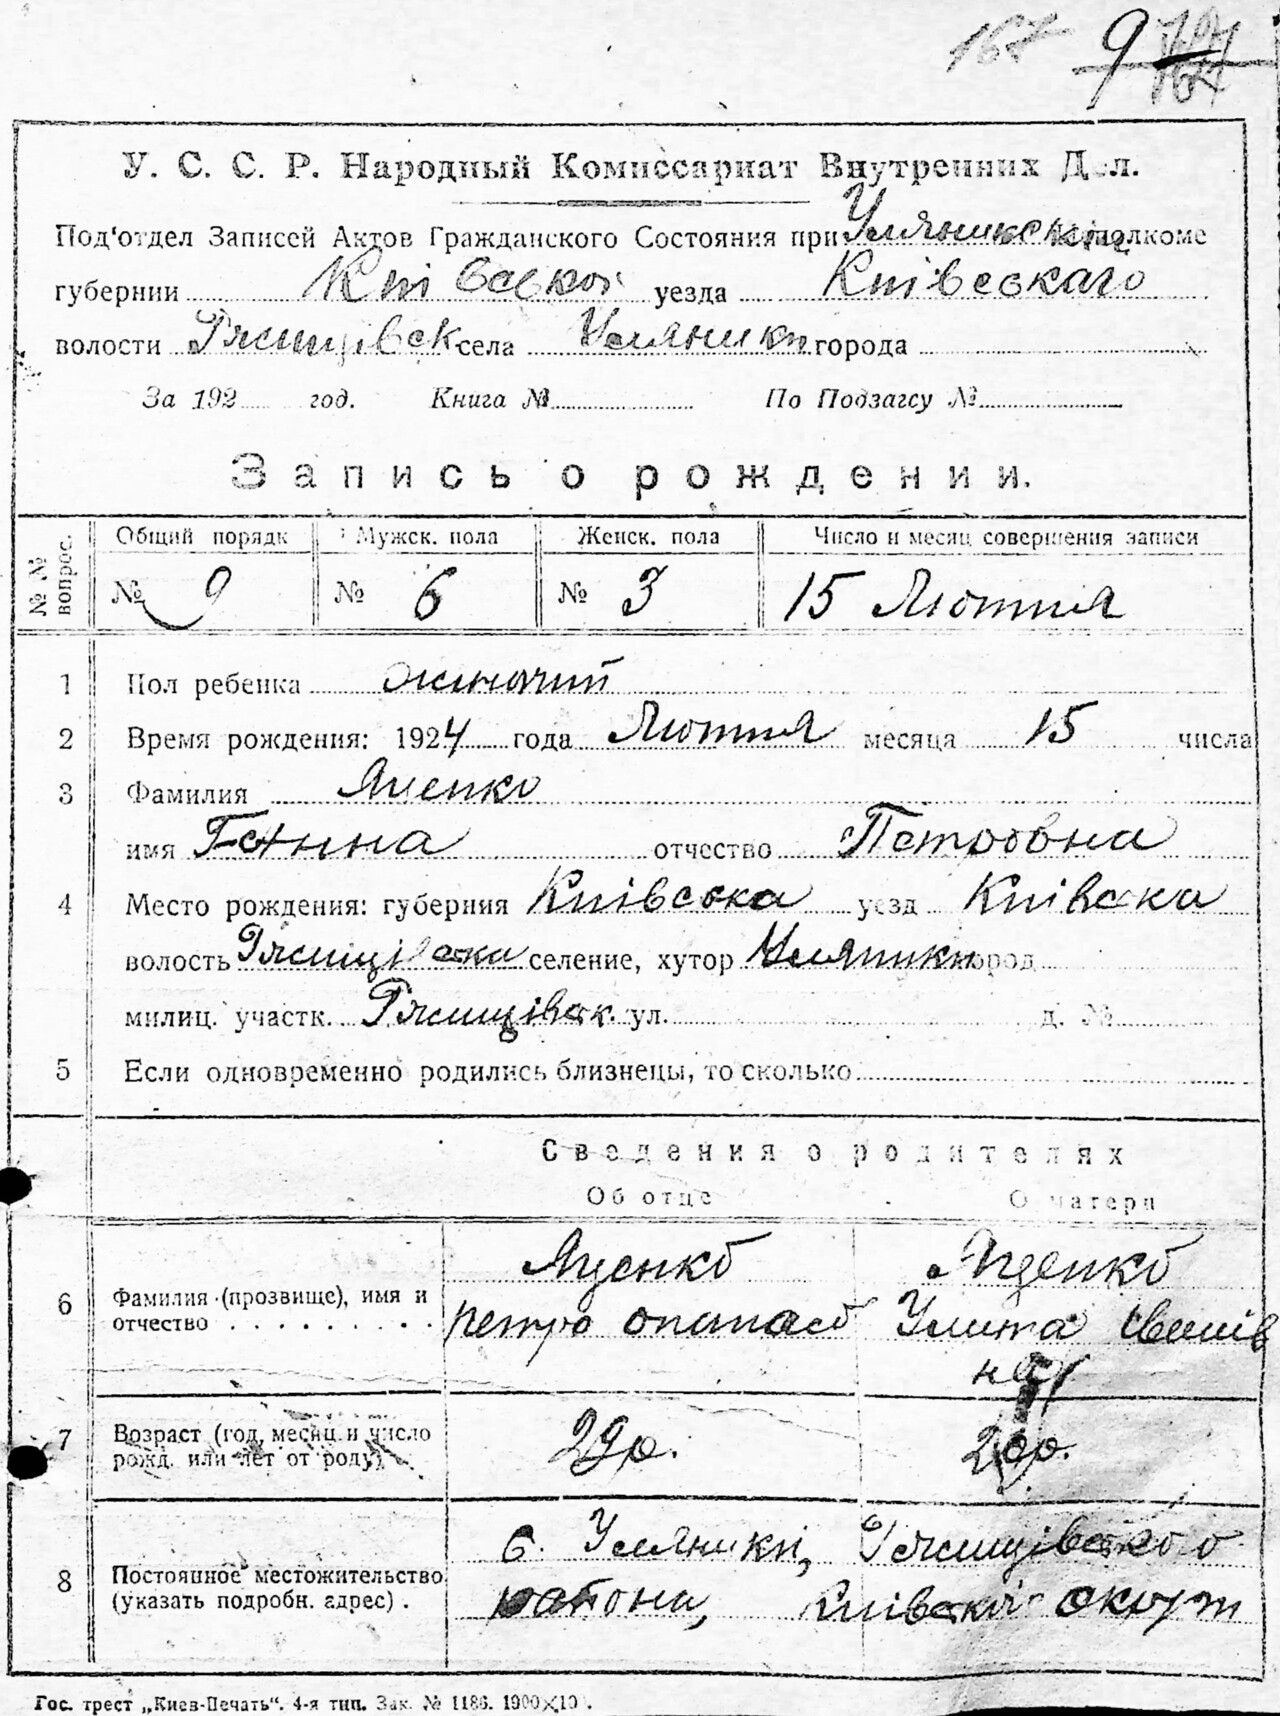 167 9
У. С. С. Р. Народный Комиссариат Внутренних Дел.
Под'отдел Записей Актов Гражданского Состояния при Уляникскім исполкоме
губернии Київської уезда Київського
волости Ржищівск села Уляники города
За 192 год. Книга № По Подзагсу №
Запись о рождении.
№ № вопрос. Общий порядк Мужск. пола Женск. пола Число и месяц совершения записи
№ 9 № 6 № 3 15 Лютня
1 Пол ребенка жиночий
2 Время рождения: 1924 года Лютня месяца 15 числа
3 Фамилия Яценко
имя Ганна отчество Петровна
4 Место рождения: губерния Київська уезд Київська
волость Ржищівська селение, хутор Уляники город
милиц. участк. Ржищівськ. ул. д. №
5 Если одновременно родились близнецы, то сколько
Сведения о родителях
Об отце О матери
Яценко Яценко
6 Фамилия (прозвище), имя и
отчество петро опанасо Улита
на
7 Возраст (год, месяц и число
рожд. или лет от роду) 29р. 26р.
с. Уляники, Ржищівського
8 Постоянное местожительство
(указать подробн. адрес). району, Київської округ
Гос. трест „Киев-Печать“. 4-я тип. Зак. № 1186. 1900×10